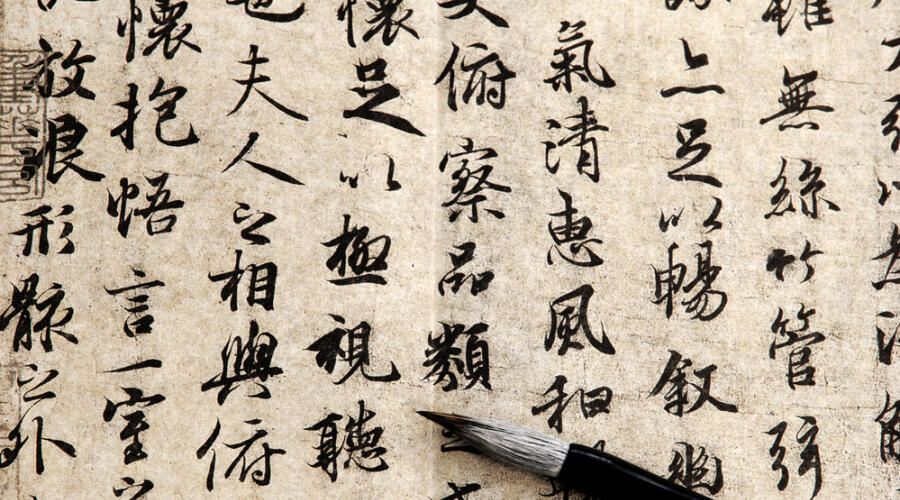 雖無絲竹管弦
詠亦足以暢叙幽
氣清惠風和
大俯察品類之
懷足以極視聽
也夫人之相與俯
懷抱悟言一室之
放浪形骸之外